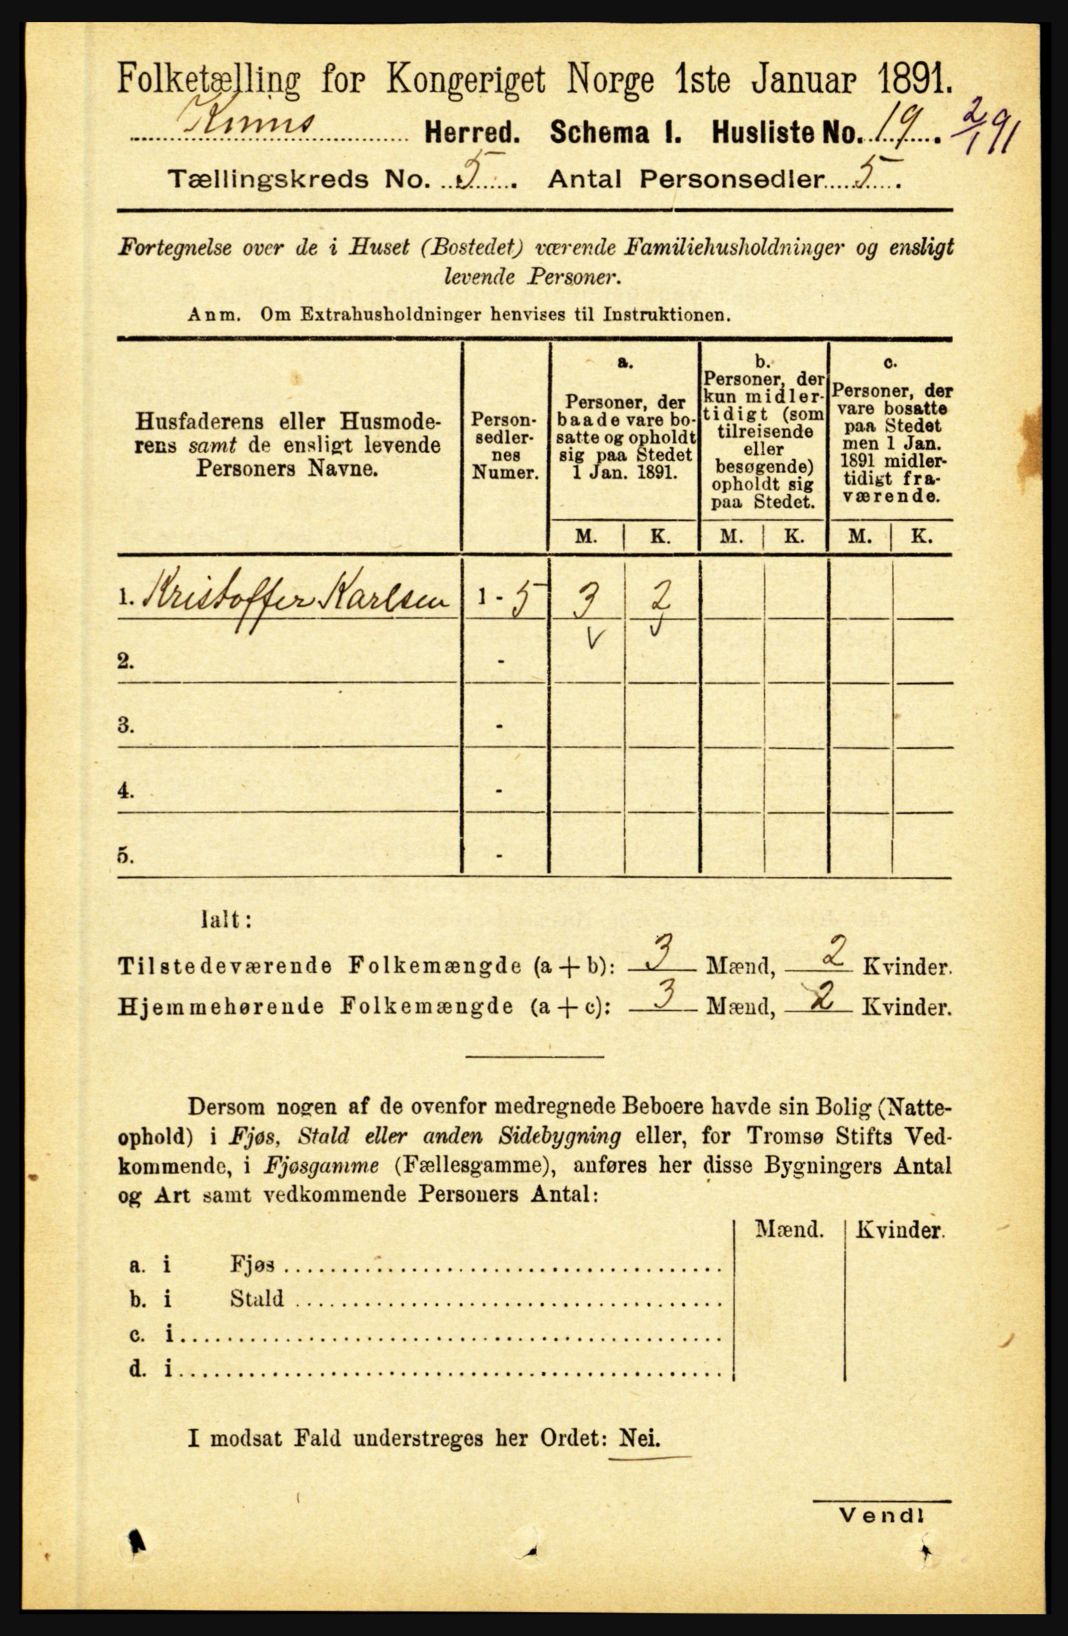 Folketælling for Kongeriget Norge 1ste Januar 1891.
Kinns Herred. Schema I. Husliste No. 19. 2/1 91
Tællingskreds No. 5. Antal Personsedler 5.
Fortegnelse over de i Huset (Bostedet) værende Familiehusholdninger og ensligt
levende Personer.
Anm. Om Extrahusholdninger henvises til Instruktionen.
Husfaderens eller Husmode-
rens samt de ensligt levende
Personers Navne.
Person-
sedler-
nes
Numer.
a.
Personer, der
baade vare bo-
satte og opholdt
sig paa Stedet
1 Jan. 1891.
b.
Personer, der
kun midler-
tidigt (som
tilreisende
eller
besøgende)
opholdt sig
paa Stedet.
c.
Personer, der
vare bosatte
paa Stedet
men 1 Jan.
1891 midler-
tidigt fra-
værende.
M. K. M. K. M. K.
1. Kristoffer Karlsen 1 - 5 3 2
2. -
3. -
4. -
5. -
Ialt:
Tilstedeværende Folkemængde (a + b): 3 Mænd, 2 Kvinder.
Hjemmehørende Folkemængde (a + c): 3 Mænd, 2 Kvinder.
Dersom nogen af de ovenfor medregnede Beboere havde sin Bolig (Natte-
ophold) i Fjøs, Stald eller anden Sidebygning eller, for Tromsø Stifts Ved-
kommende, i Fjøsgamme (Fællesgamme), anføres her disse Bygningers Antal
og Art samt vedkommende Personers Antal:
Mænd. Kvinder.
a. i Fjøs
b. i Stald
c. i
d. i
I modsat Fald understreges her Ordet: Nei.
Vend!